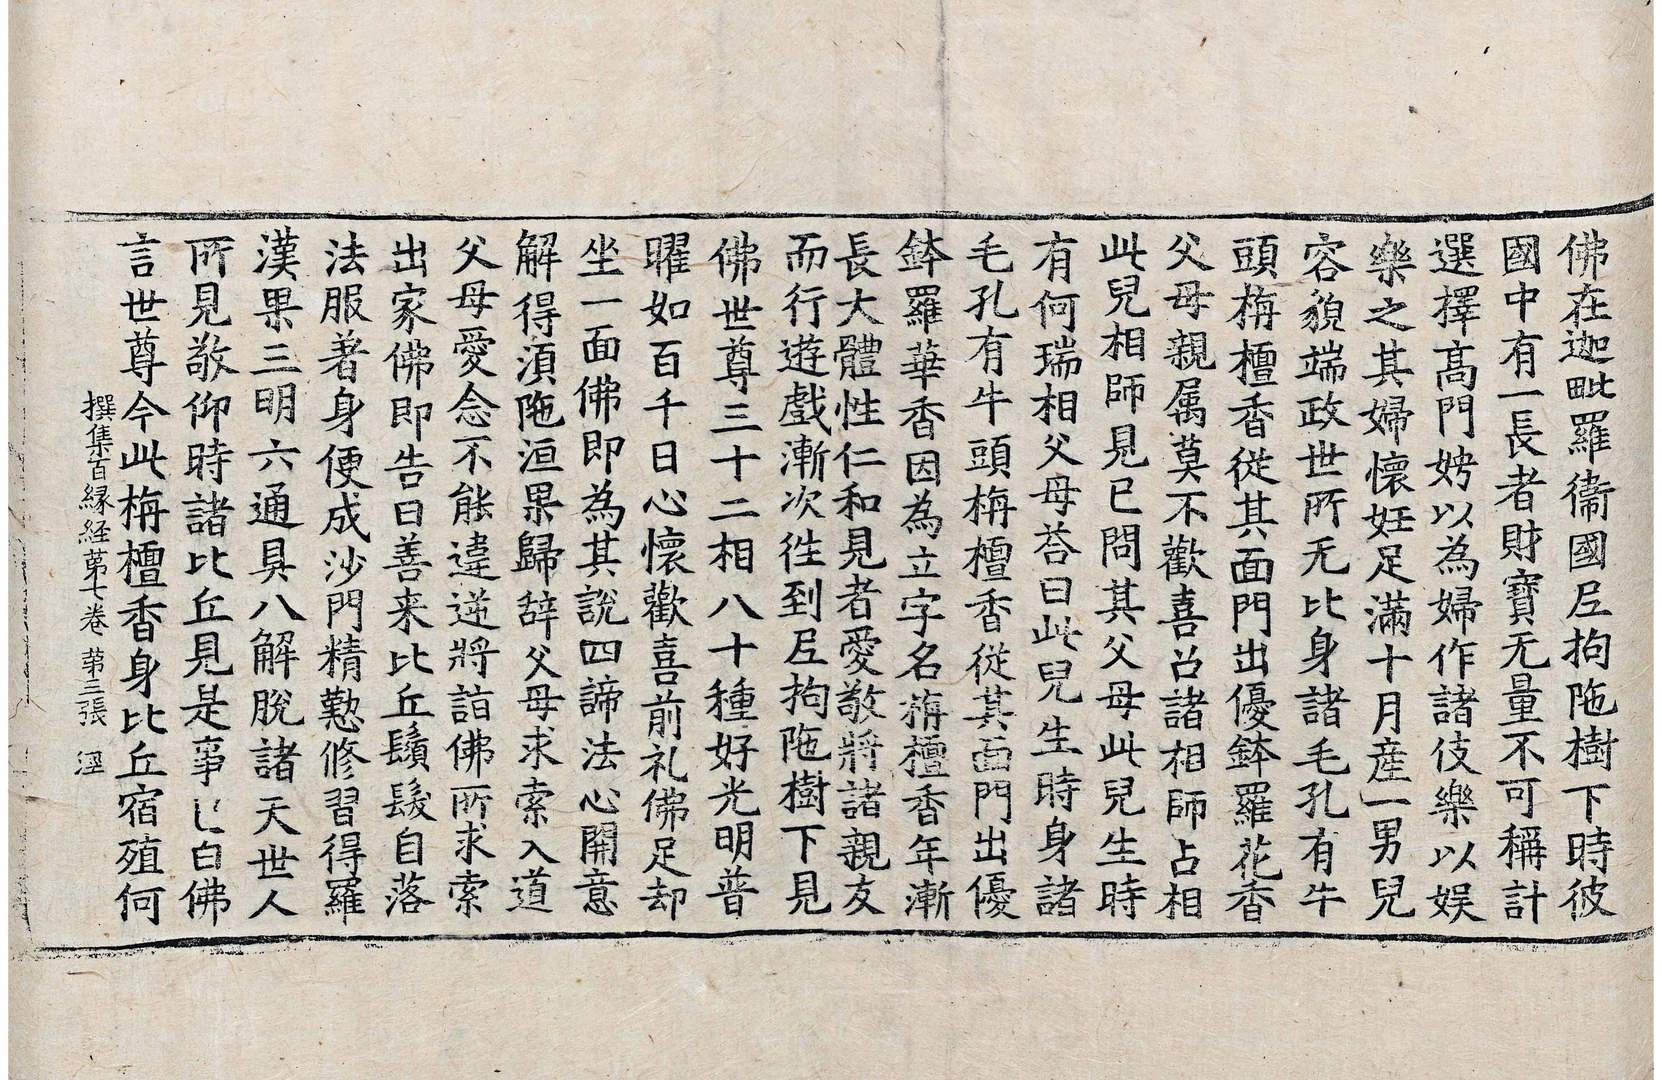 佛在迦毗羅衞國𡰱拘陁樹下時彼
國中有一長者財寶无量不可稱計
選擇高門娉以為婦作諸伎樂以娱
樂之其婦懷姙足滿十月産一男兒
容貌端政世所无比身諸毛孔有牛
頭栴檀香從其面門出優鉢羅花香
父母親属莫不歡喜召諸相師占相
此兒相師見已問其父母此兒生時
有何瑞相父母荅曰此兒生時身諸
毛孔有牛頭栴檀香從其面門出優
鉢羅華香因為立字名栴檀香年漸
長大體性仁和見者愛敬將諸親友
而行遊戲漸次徃到𡰱拘陁樹下見
佛世尊三十二相八十種好光明普
曜如百千日心懷歡喜前礼佛足却
坐一面佛即為其說四諦法心開意
解得湏陁洹果歸辞父母求索入道
父母愛念不能違逆將詣佛所求索
出家佛即告曰善来比丘鬚髮自落
法服著身便成沙門精懃修習得羅
漢果三明六通具八解脫諸天世人
所見敬仰時諸比丘見是事已白佛
言世尊今此栴檀香身比丘宿殖何
撰集百縁経苐七卷 苐三張 𢀖